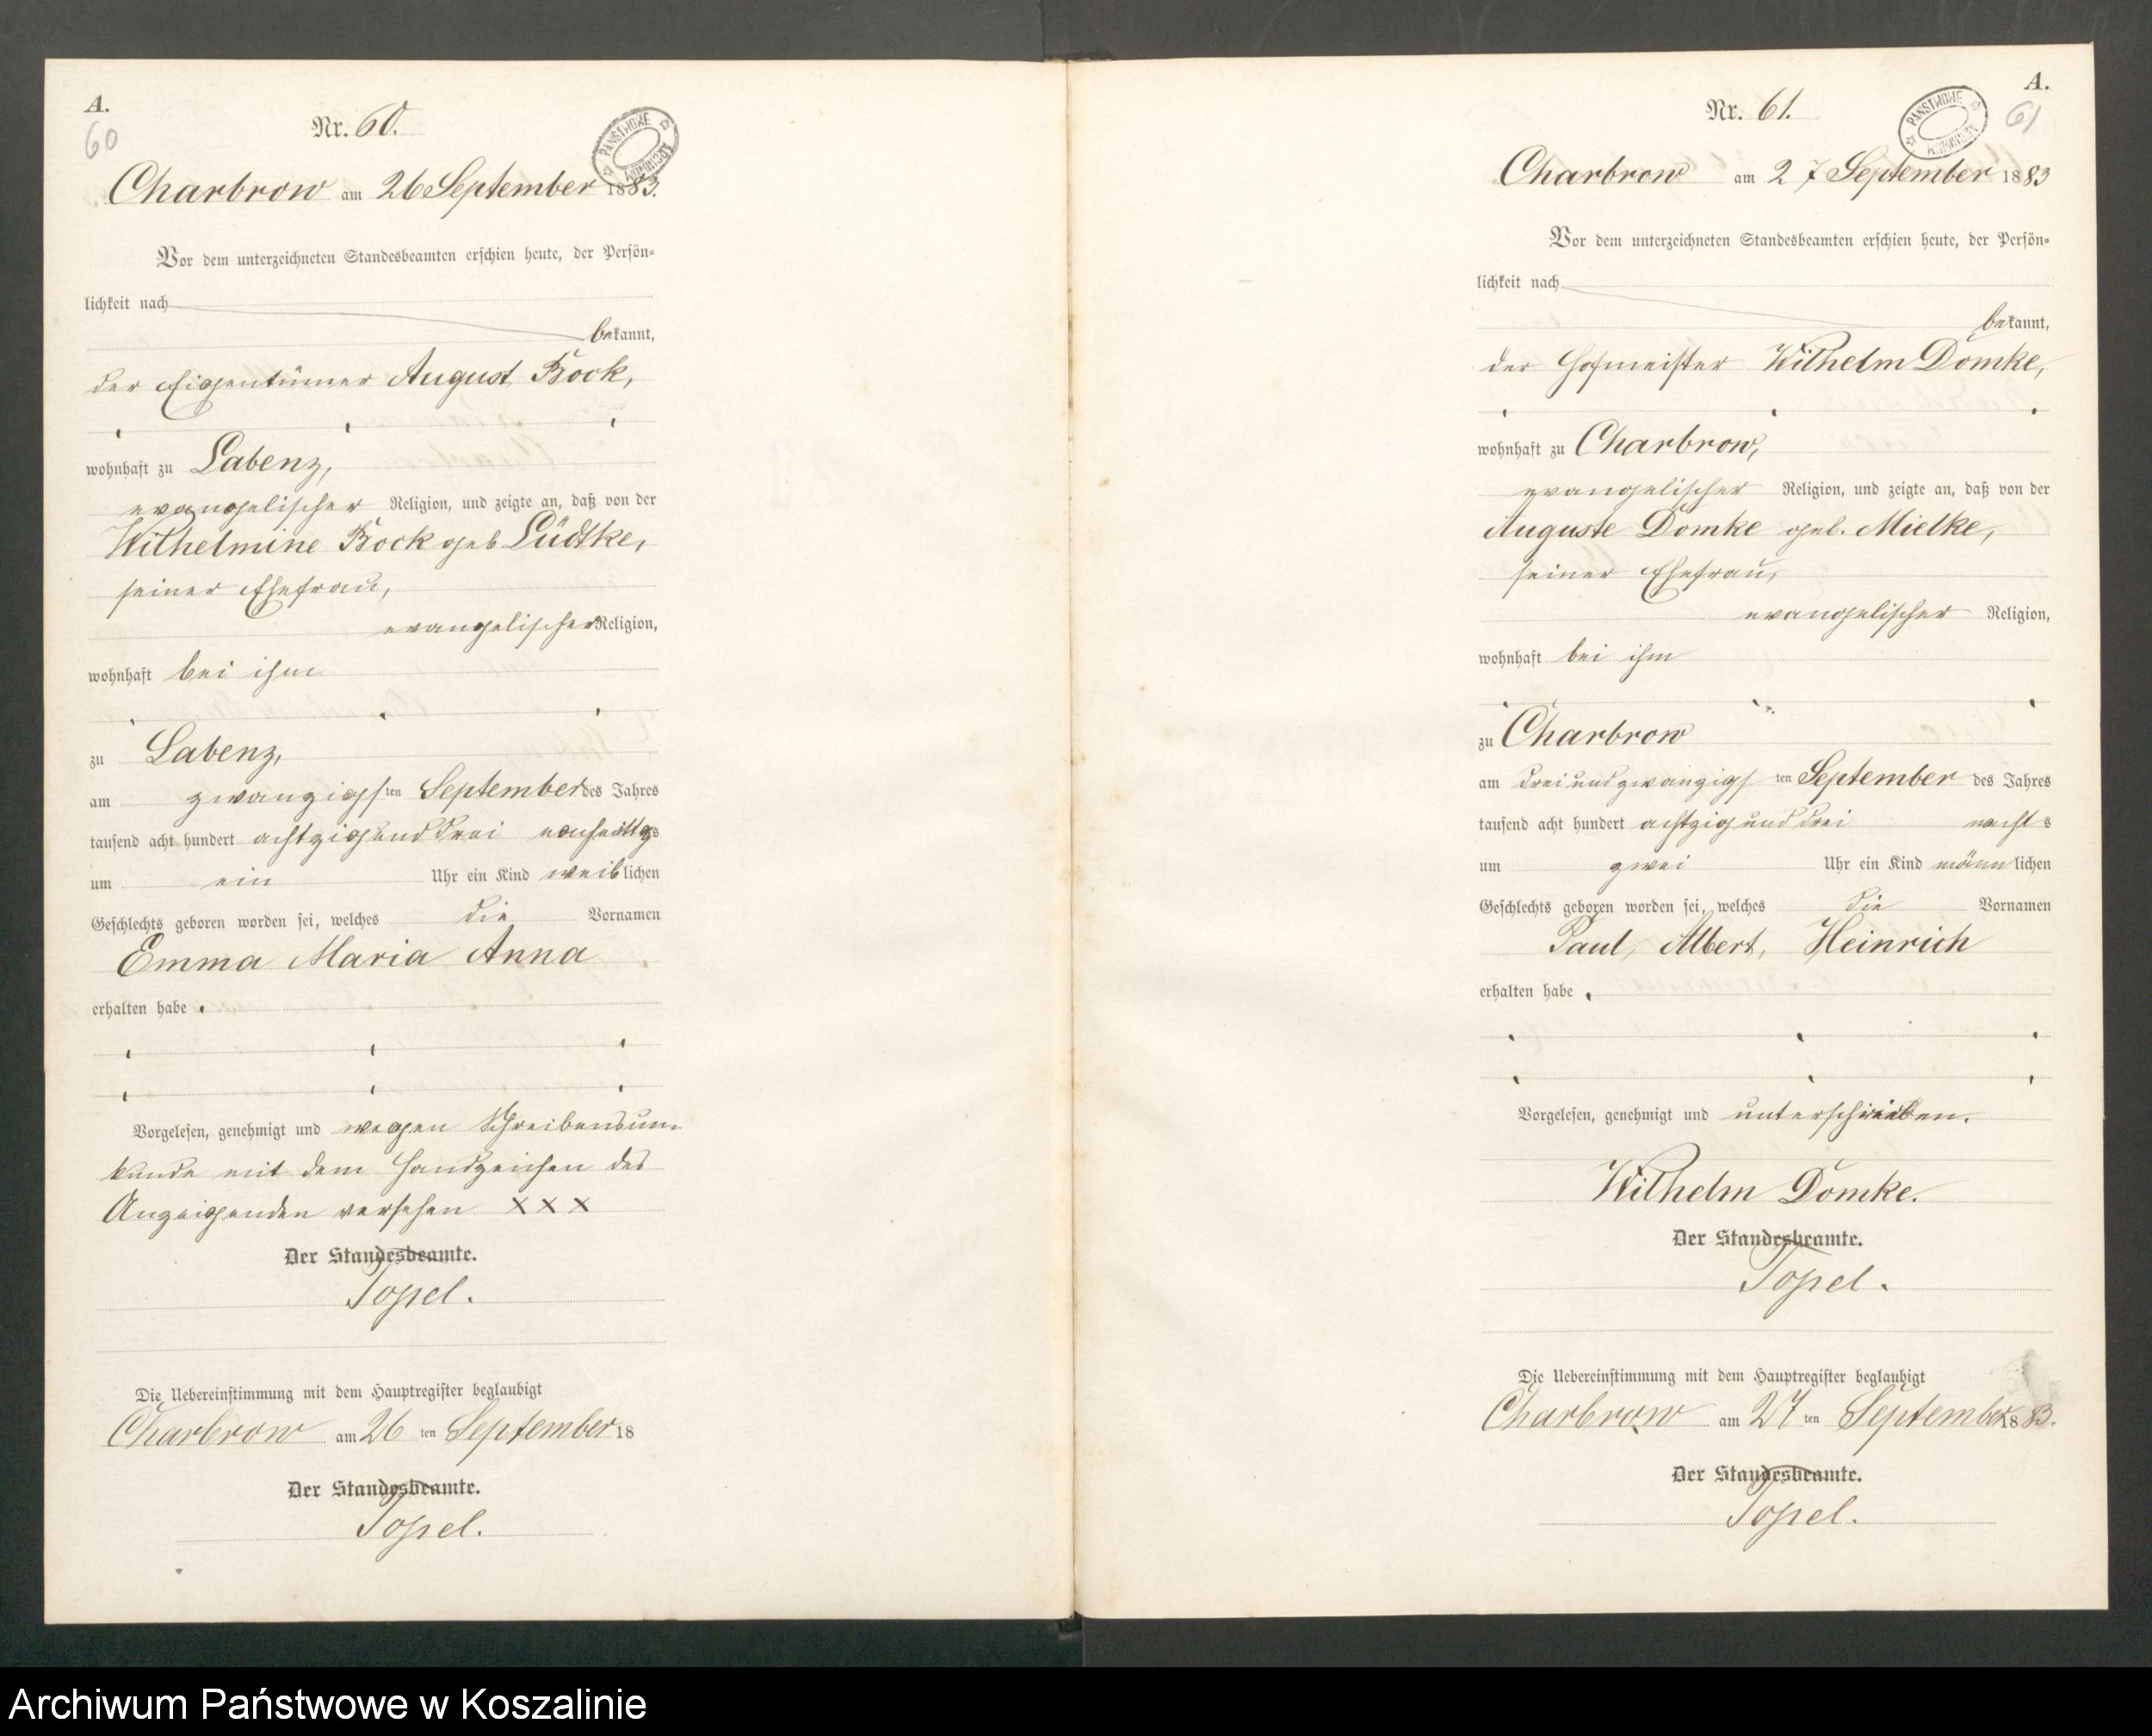 A.
60
Nr. 60.
PAŃSTWOWE ARCHIWUM
Charbrow am 26 September 1883.
Vor dem unterzeichneten Standesbeamten erschien heute, der Persön-
lichkeit nach
bekannt,
der Eigentümer August Bock,
wohnhaft zu Labenz,
evangelischer Religion, und zeigte an, daß von der
Wilhelmine Bock geb Lüdtke,
seiner Ehefrau,
evangelischer Religion,
wohnhaft bei ihm
zu Labenz,
am zwanzigsten September des Jahres
tausend acht hundert achtzig und drei nachmittags
um ein Uhr ein Kind weiblichen
Geschlechts geboren worden sei, welches die Vornamen
Emma Maria Anna
erhalten habe.
Vorgelesen, genehmigt und wegen Schreibensun-
kunde mit dem Handzeichen des
Anzeigenden versehen XXX
Der Standesbeamte.
Topel.
Die Uebereinstimmung mit dem Hauptregister beglaubigt
Charbrow am 26 ten September 18
Der Standesbeamte.
Topel.
A.
61
Nr. 61.
PAŃSTWOWE ARCHIWUM
Charbrow am 27 September 1883
Vor dem unterzeichneten Standesbeamten erschien heute, der Persön-
lichkeit nach
bekannt,
der Hofmeister Wilhelm Domke,
wohnhaft zu Charbrow,
evangelischer Religion, und zeigte an, daß von der
Auguste Domke geb. Mielke,
seiner Ehefrau,
evangelischer Religion,
wohnhaft bei ihm
zu Charbrow
am dreiundzwanzigsten September des Jahres
tausend acht hundert achtzig und drei nachts
um zwei Uhr ein Kind männlichen
Geschlechts geboren worden sei, welches die Vornamen
Paul, Albert, Heinrich
erhalten habe.
Vorgelesen, genehmigt und unterschrieben.
Wilhelm Domke.
Der Standesbeamte.
Topel.
Die Uebereinstimmung mit dem Hauptregister beglaubigt
Charbrow am 27 ten September 1883.
Der Standesbeamte.
Topel.
Archiwum Państwowe w Koszalinie